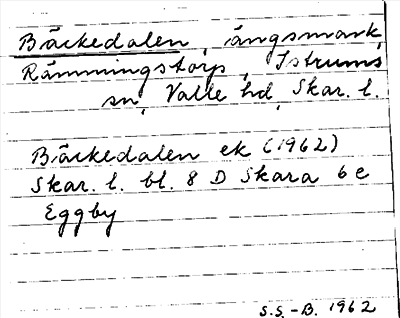 Bäckedalen, ängsmark,
Rämmingstorp, Istrums
sn, Valle hd, Skar. l.
Bäckedalen ek (1962)
Skar. l. bl. 8 D Skara 6e
Eggby
S.S.-B. 1962